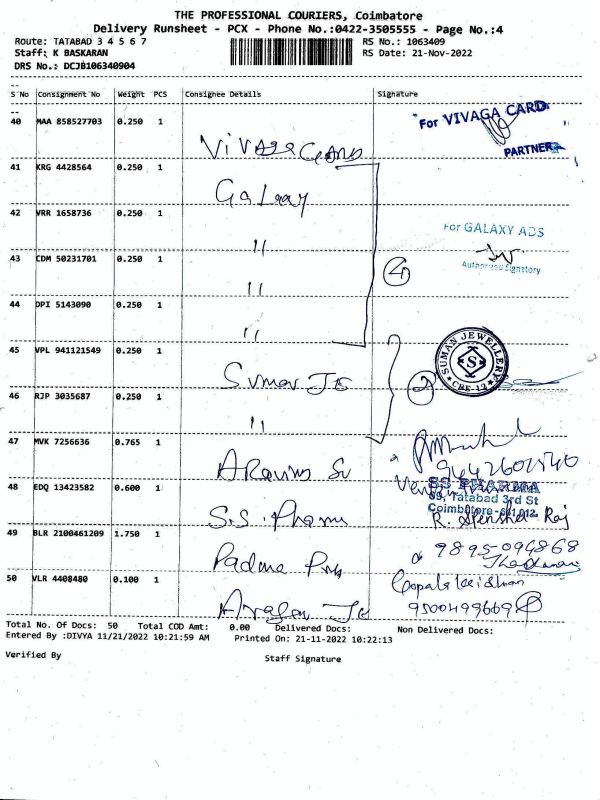 THE PROFESSIONAL COURIERS, Coimbatore
Delivery Runsheet - PCX - Phone No.:0422-3505555 - Page No.:4
Route: TATABAD 3 4 5 6 7
RS No.: 1063409
Staff: K BASKARAN
RS Date: 21-Nov-2022
DRS No.: DCJB106340904
S No Consignment No Weight PCS Consignee Details Signature
40 MAA 858527703 0.250 1
For VIVAGA CARD
PARTNER
41 KRG 4428564 0.250 1
Galaxy
42 VRR 1658736 0.250 1
"
For GALAXY ADS
Authorised Signatory
43 CDM 50231701 0.250 1
"
4
44 DPI 5143090 0.250 1
"
45 VPL 941121549 0.250 1
SUMAN JEWELLERY
S
CBE-12
2
46 RJP 3035687 0.250 1
"
47 MVK 7256636 0.765 1
48 EDQ 13423582 0.600 1
S.S. Pharma
SS PHARMA
Tatabad 3rd St
Coimbatore-641 012.
49 BLR 2100461209 1.750 1
Padma
50 VLR 4408480 0.100 1
9500499669
Total No. Of Docs: 50 Total COD Amt: 0.00 Delivered Docs: Non Delivered Docs:
Entered By :DIVYA 11/21/2022 10:21:59 AM Printed On: 21-11-2022 10:22:13
Verified By
Staff Signature